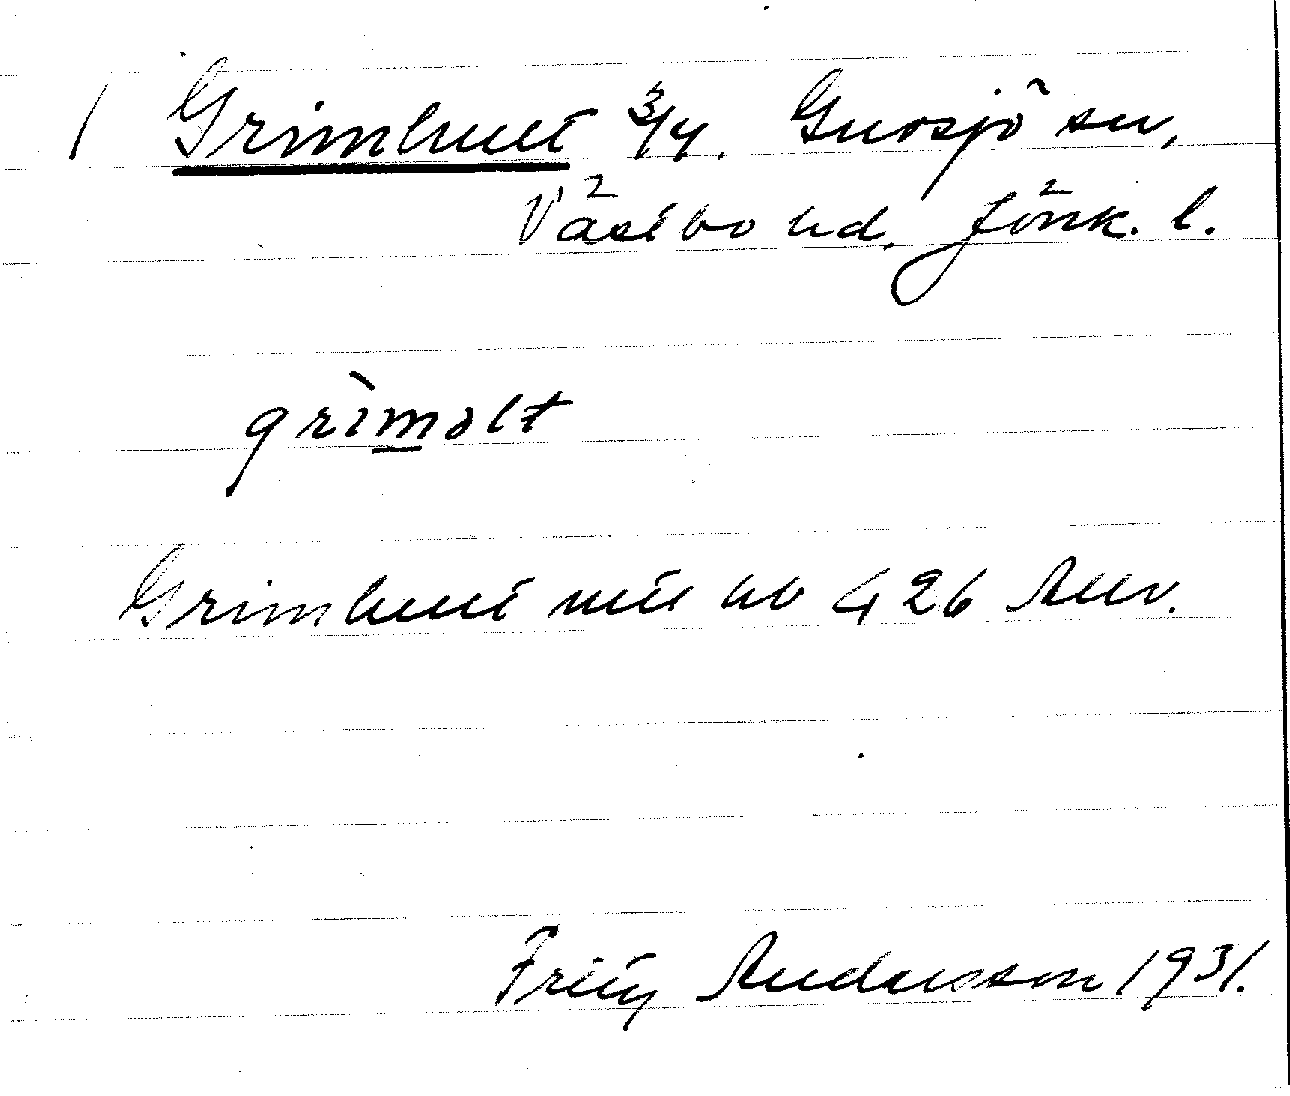 / Grimhult 3/4. Gnosjö sn,
Västbo hd. Jönk. l.
grìməlt
Grimhult
Fritz Andersson 1931.